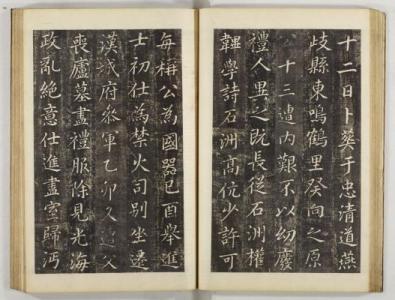 十二日卜葬于忠清道燕
岐縣東鳴鶴里癸向之原
十三遭内艱不以幼廢
禮人異之既長從石洲權
韠學詩石洲高伉少許可
每稱公為國器己酉舉進
士初仕為禁火司別坐遷
漢城府參軍乙卯又遭父
喪廬墓盡禮服除見光海
政亂絕意仕進盡室歸沔